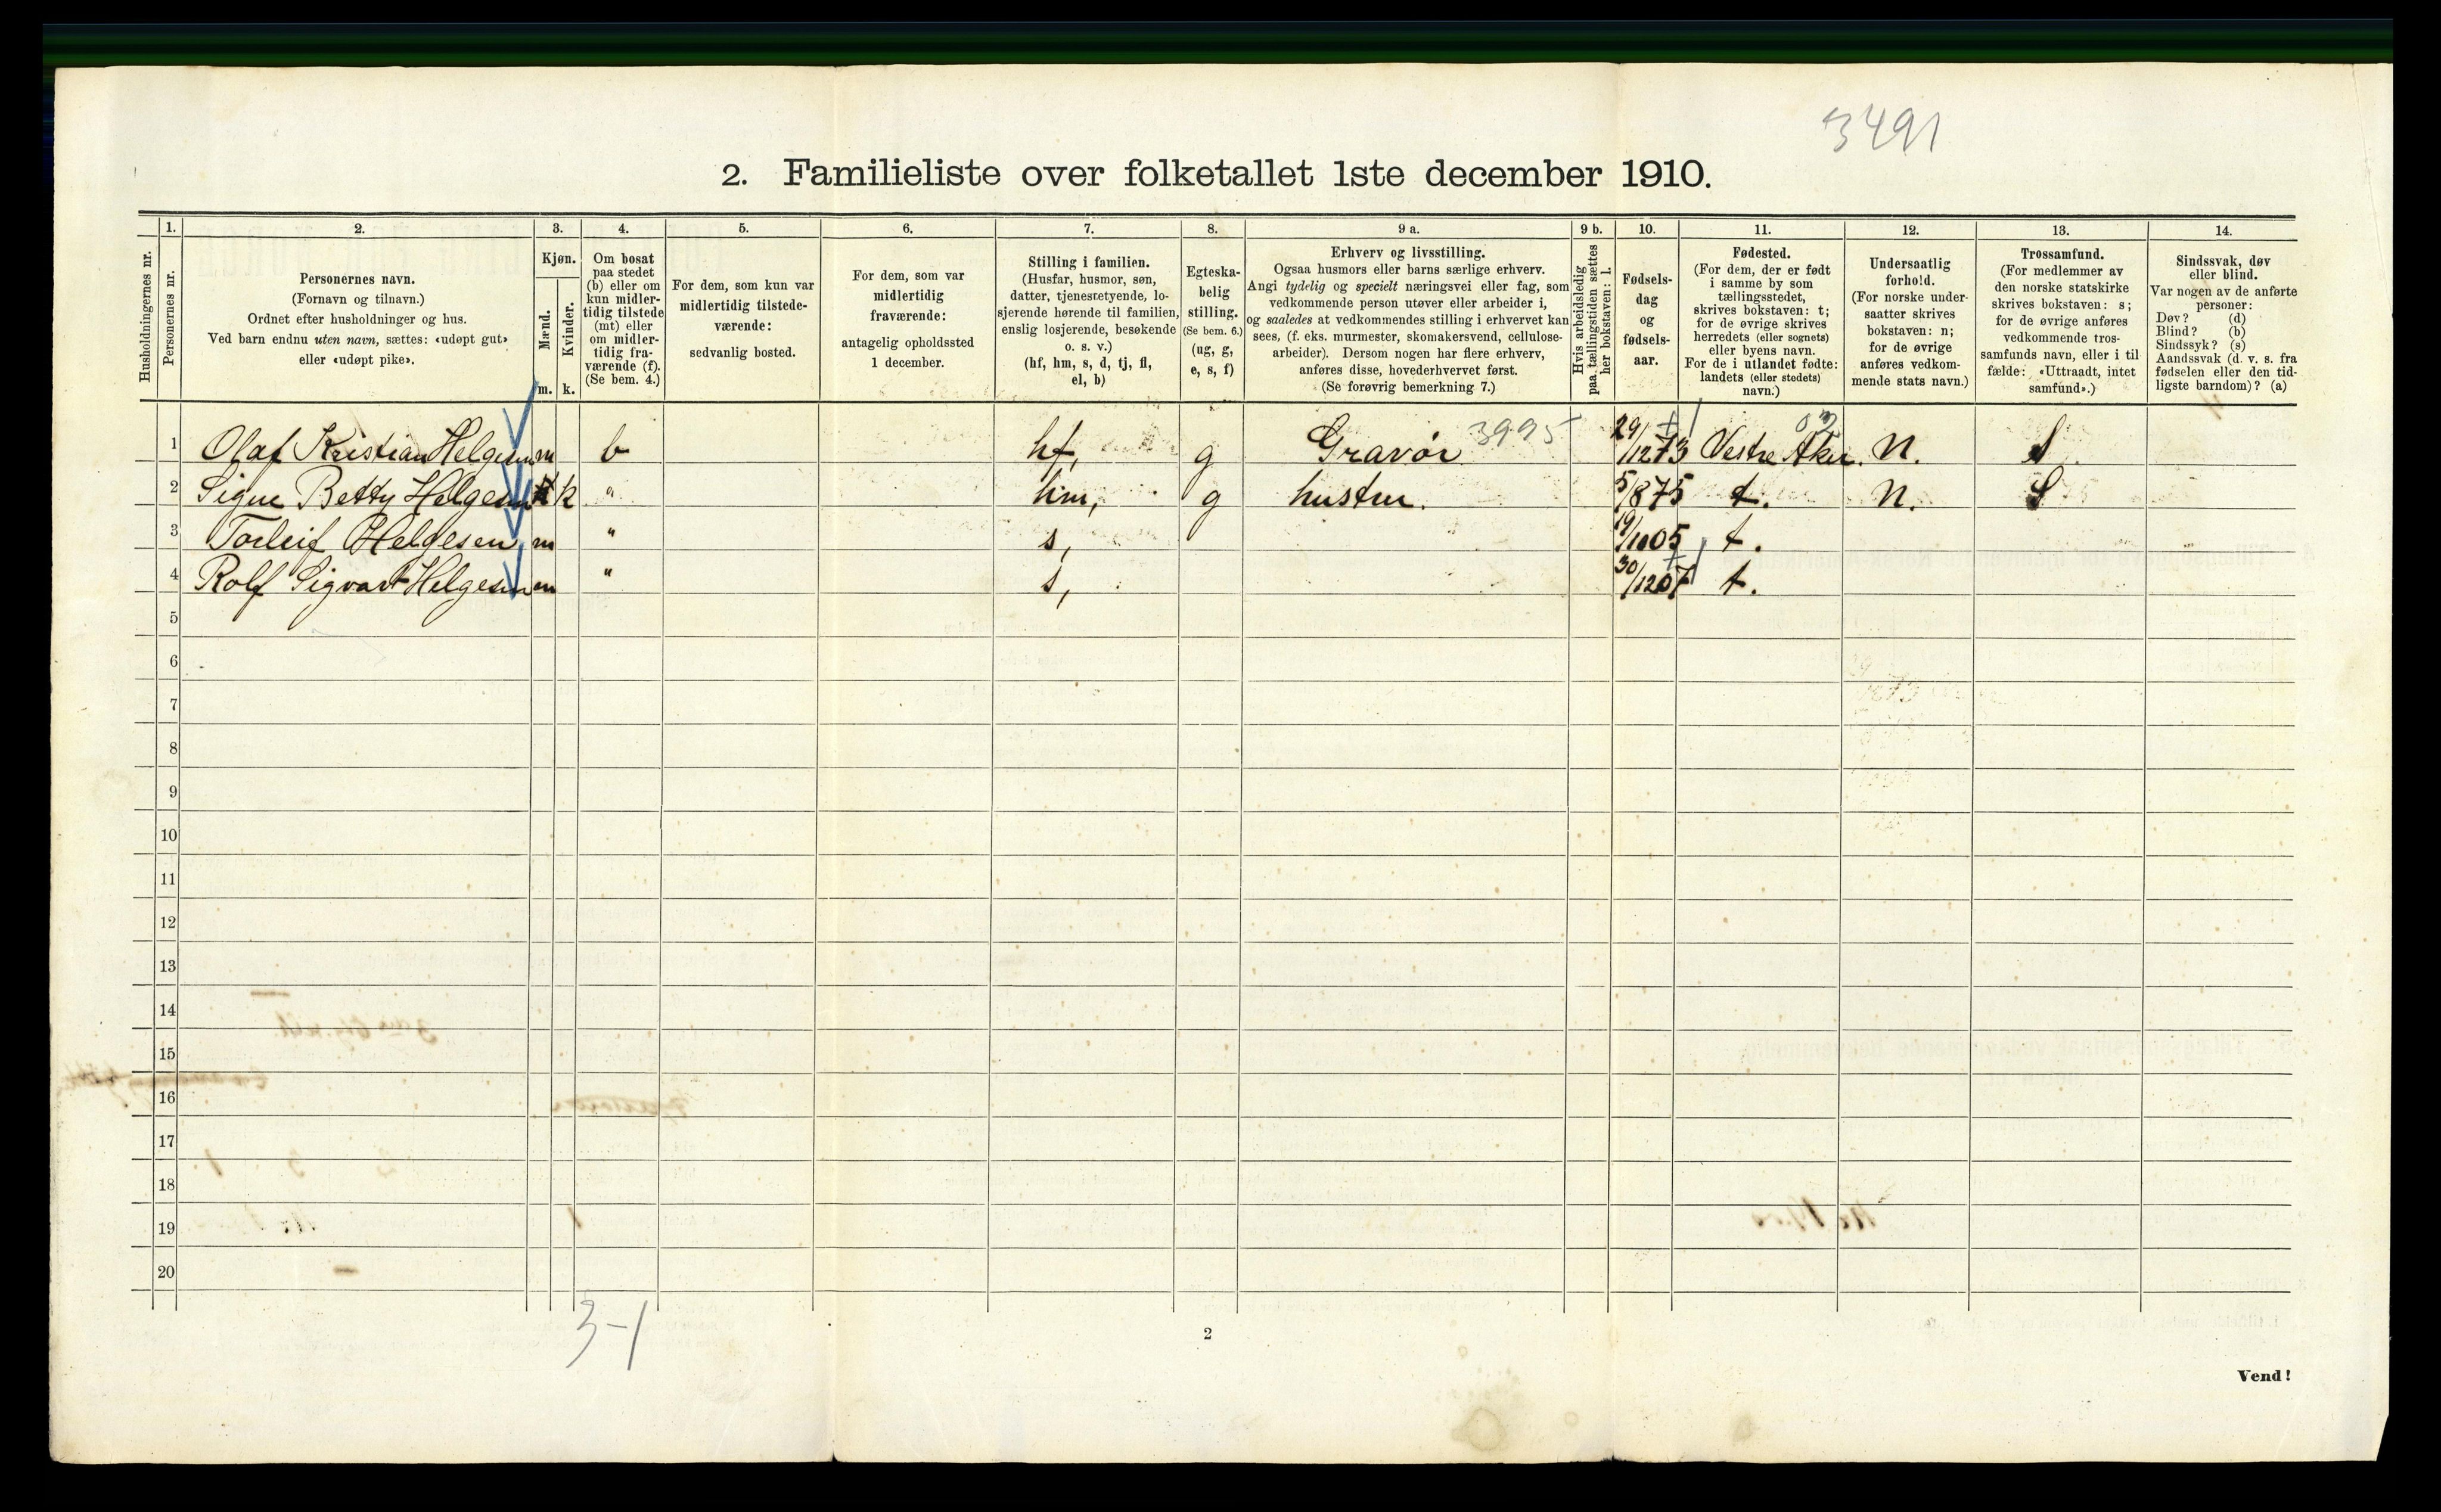 3491
2. Familieliste over folketallet 1ste december 1910.
Husholdningernes nr.
1. Personernes nr.
2. Personernes navn. (Fornavn og tilnavn.) Ordnet efter husholdninger og hus. Ved barn endnu uten navn, sættes: «udøpt gut» eller «udøpt pike».
3. Kjøn. Mænd. m. Kvinder. k.
4. Om bosat paa stedet (b) eller om kun midler-tidig tilstede (mt) eller om midler-tidig fra-værende (f). (Se bem. 4.)
5. For dem, som kun var midlertidig tilstede-værende: sedvanlig bosted.
6. For dem, som var midlertidig fraværende: antagelig opholdssted 1 december.
7. Stilling i familien. (Husfar, husmor, søn, datter, tjenestetyende, lo-sjerende hørende til familien, enslig losjerende, besøkende o. s. v.) (hf, hm, s, d, tj, fl, el, b)
8. Egteska-belig stilling. (Se bem. 6.) (ug, g, e, s, f)
9 a. Erhverv og livsstilling. Ogsaa husmors eller barns særlige erhverv. Angi tydelig og specielt næringsvei eller fag, som vedkommende person utøver eller arbeider i, og saaledes at vedkommendes stilling i erhvervet kan sees, (f. eks. murmester, skomakersvend, cellulose-arbeider). Dersom nogen har flere erhverv, anføres disse, hovederhvervet først. (Se forøvrig bemerkning 7.)
9 b. Hvis arbeidsledig paa tællingstiden sættes her bokstaven: l.
10. Fødsels-dag og fødsels-aar.
11. Fødested. (For dem, der er født i samme by som tællingsstedet, skrives bokstaven: t; for de øvrige skrives herredets (eller sognets) eller byens navn. For de i utlandet fødte: landets (eller stedets) navn.)
12. Undersaatlig forhold. (For norske under-saatter skrives bokstaven: n; for de øvrige anføres vedkom-mende stats navn.)
13. Trossamfund. (For medlemmer av den norske statskirke skrives bokstaven: s; for de øvrige anføres vedkommende tros-samfunds navn, eller i til fælde: «Uttraadt, intet samfund».)
14. Sindssvak, døv eller blind. Var nogen av de anførte personer: Døv? (d) Blind? (b) Sindssyk? (s) Aandssvak (d. v. s. fra fødselen eller den tid-ligste barndom)? (a)
1 Olaf Kristian Helgesen m b hf, g Gravör 3995 29/12 73 Vestre Aker. n. S
2 Signe Betty Helgesen k " hm, g hustru. 5/8 75 t. n. S
3 Torleif Helgesen m " s, 19/10 05 t.
4 Rolf Sigvart Helgesen m " s, 30/12 07 t.
5
6
7
8
9
10
11
12
13
14
15
16
17
18
19
20
3-1
2
Vend!